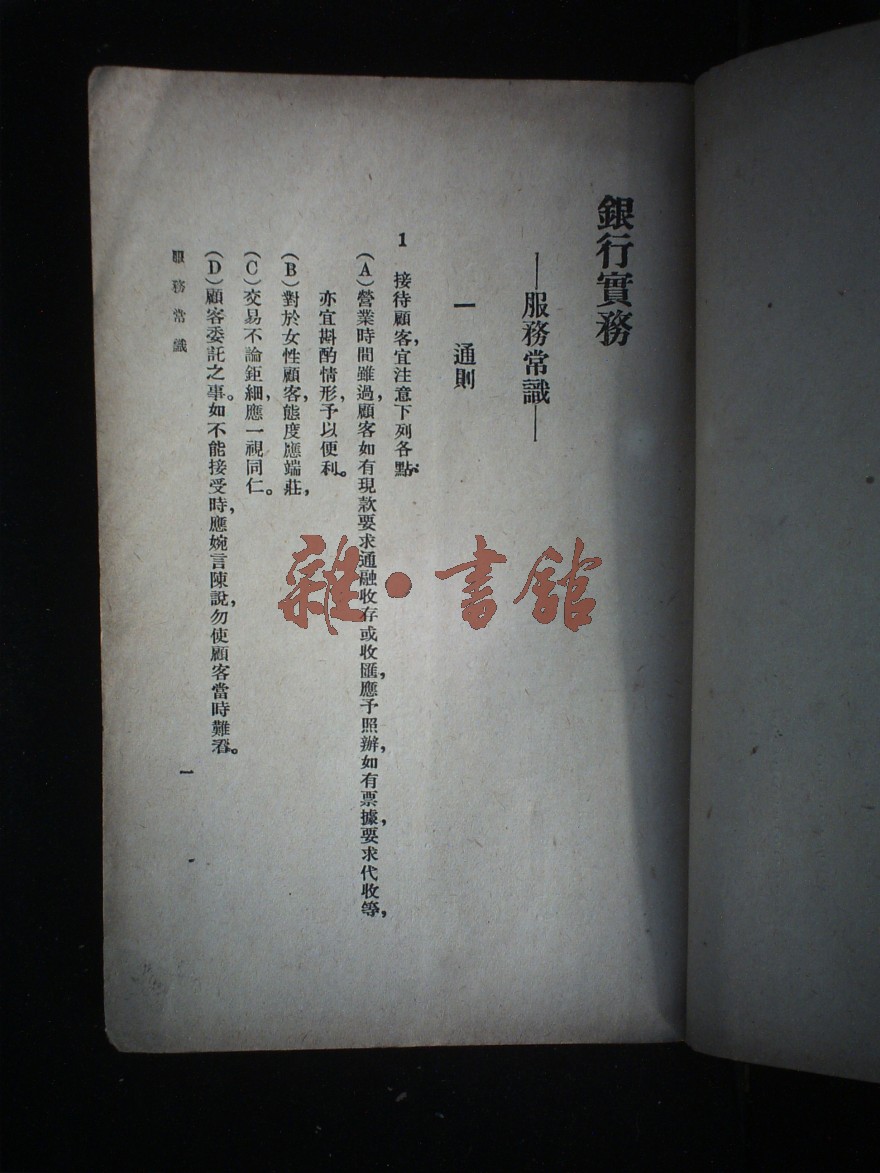 銀行實務
—服務常識—
一 通則
1 接待顧客,宜注意下列各點:
(A)營業時間雖過,顧客如有現款要求通融收存或收匯,應予照辦,如有票據,要求代收等,
亦宜斟酌情形,予以便利。
(B)對於女性顧客,態度應端莊,
(C)交易不論鉅細,應一視同仁。
(D)顧客委託之事。如不能接受時,應婉言陳說,勿使顧客當時難堪。
服務常識
一
雜·書館